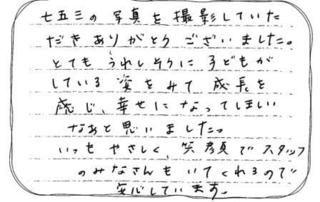 七五三の写真を撮影していた
だきありがとうございました。
とてもうれしそうに子どもが
している姿をみて成長を
感じ、幸せになってしまい
なあと思いました。
いつもやさしく、笑顔でスタッフ
のみなさんもいてくれるので
安心しています。